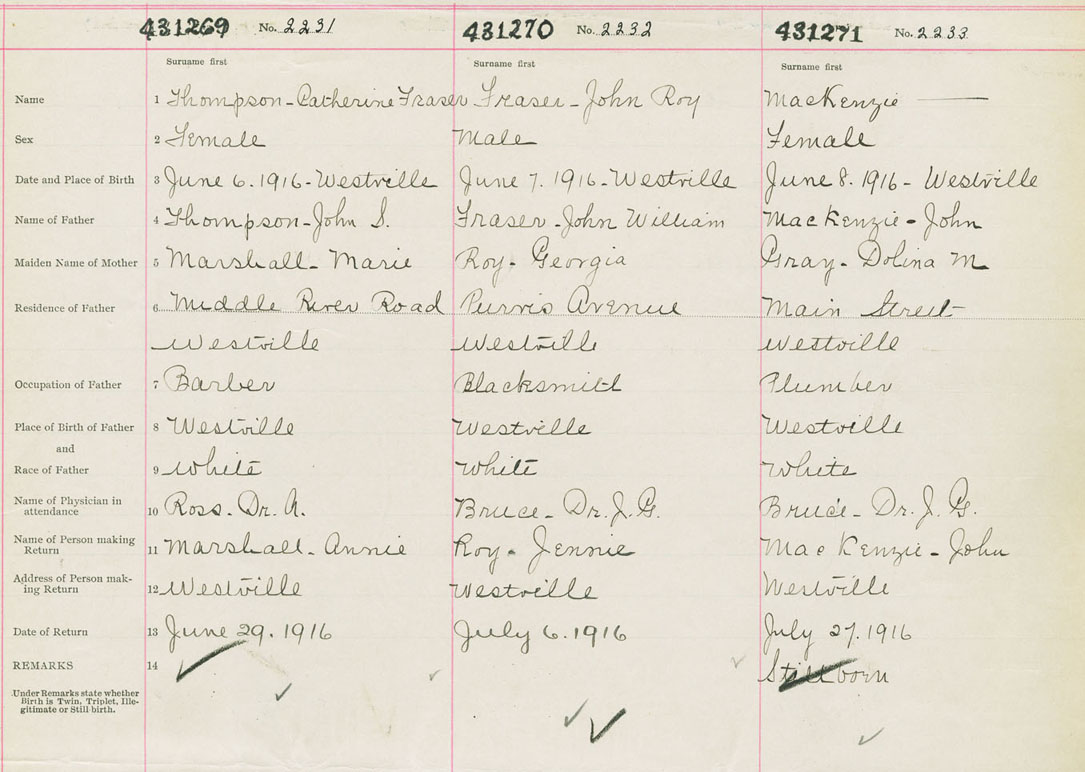 431269 No. 2231 431270 No. 2232 431271 No. 2233
Surname first Surname first Surname first
Name 1 Thompson - Catherine Fraser Fraser - John Roy MacKenzie ——
Sex 2 Female Male Female
Date and Place of Birth 3 June 6. 1916 - Westville June 7. 1916 - Westville June 8. 1916 - Westville
Name of Father 4 Thompson - John S. Fraser - John William MacKenzie - John
Maiden Name of Mother 5 Marshall - Marie Roy. Georgia Gray - Dolina M
Residence of Father 6 Middle River Road Purvis Avenue Main Street
Westville Westville Westville
Occupation of Father 7 Barber Blacksmith Plumber
Place of Birth of Father 8 Westville Westville Westville
and
Race of Father 9 White White White
Name of Physician in
attendance 10 Ross - Dr. A. Bruce - Dr. J. G. Bruce - Dr. J. G.
Name of Person making
Return 11 Marshall - Annie Roy - Jennie MacKenzie - John
Address of Person mak-
ing Return 12 Westville Westville Westville
Date of Return 13 June 29. 1916 July 6. 1916 July 27. 1916
REMARKS 14 Stillborn
Under Remarks state whether
Birth is Twin, Triplet, Ille-
gitimate or Still birth.